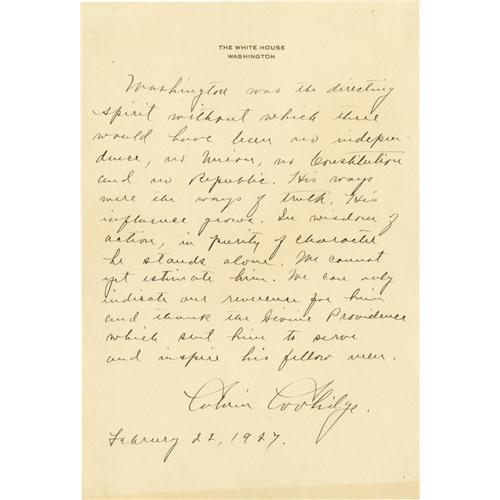 THE WHITE HOUSE
WASHINGTON
Washington was the directing
spirit without which there
would have been no indepen-
dence, no Union, no Constitution
and no Republic. His ways
were the ways of truth. His
influence grows. In wisdom of
action, in purity of character
he stands alone. We cannot
yet estimate him. We can only
indicate our reverence for him
and thank the Divine Providence
which sent him to serve
and inspire his fellow men.
Calvin Coolidge.
February 22, 1927.